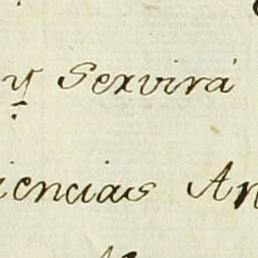 y Servirá
iencias An